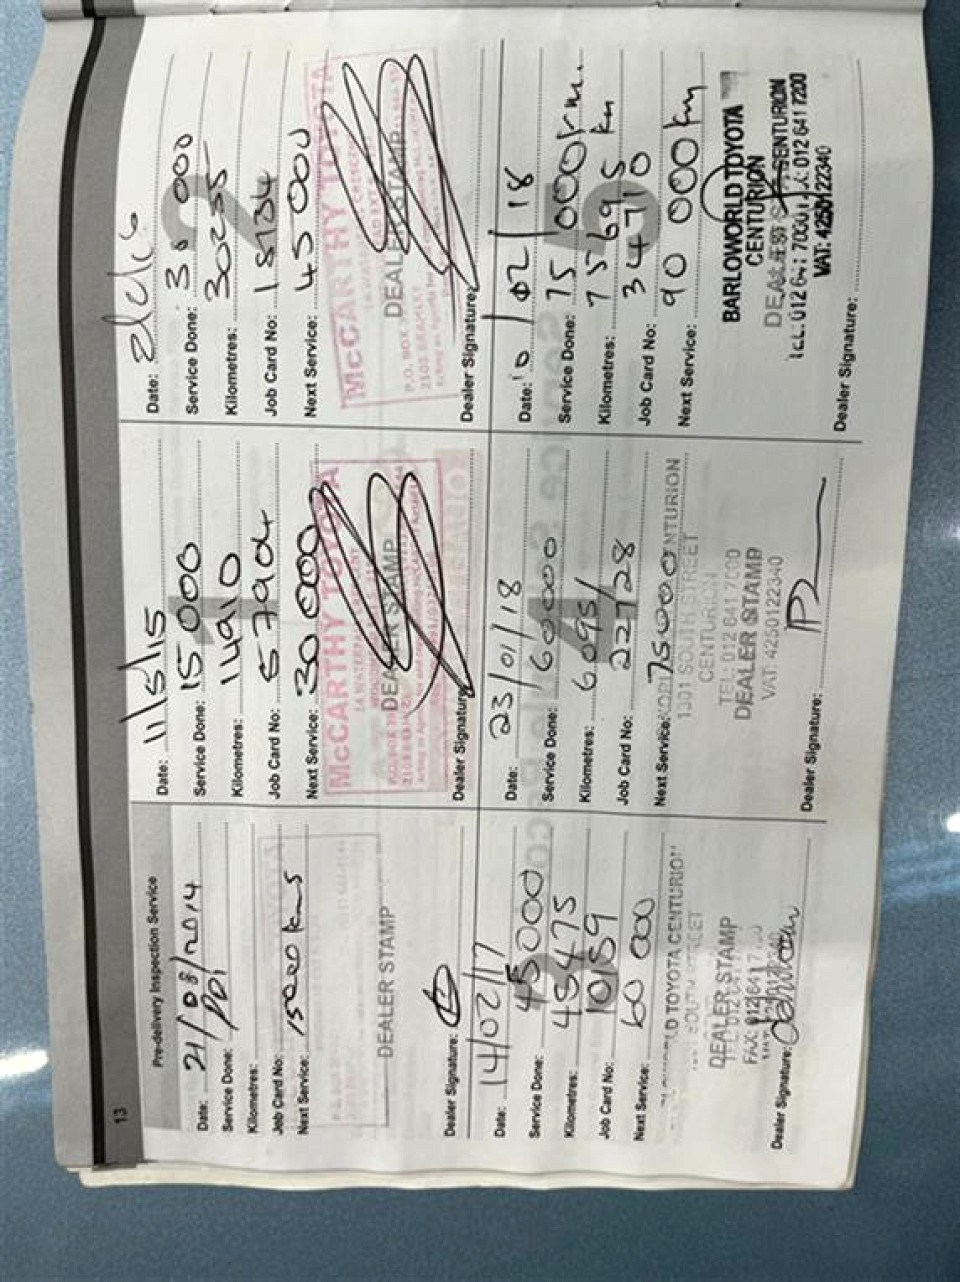 13
Pre-delivery Inspection Service
Date: 21/08/2014
Service Done: PDI
Kilometres:
Job Card No:
Next Service: 15000 kms
DEALER STAMP
Dealer Signature:
1
Date: 11/5/15
Service Done: 15 000
Kilometres: 14910
Job Card No:
Next Service: 30 000
McCARTHY TOYOTA
DEALER STAMP
Dealer Signature:
2
Date:
Service Done: 30 000
Kilometres: 30255
Job Card No: 18134
Next Service: 45 000
McCARTHY TOYOTA
DEALER STAMP
Dealer Signature:
3
Date: 14/02/17
Service Done: 45000
Kilometres: 45475
Job Card No: 1059
Next Service: 60 000
TOYOTA CENTURION
DEALER STAMP
Dealer Signature:
4
Date: 23/01/18
Service Done: 60000
Kilometres: 60951
Job Card No: 22728
Next Service: 75000
CENTURION
1301 SOUTH STREET
CENTURION
TEL: 012 641 7000
DEALER STAMP
VAT: 4250122340
Dealer Signature:
5
Date: 10/02/18
Service Done: 75 000
Kilometres: 75695 km
Job Card No: 34710
Next Service: 90 000 km
BARLOWORLD TOYOTA
CENTURION
CENTURION
VAT: 4250122340
Dealer Signature: